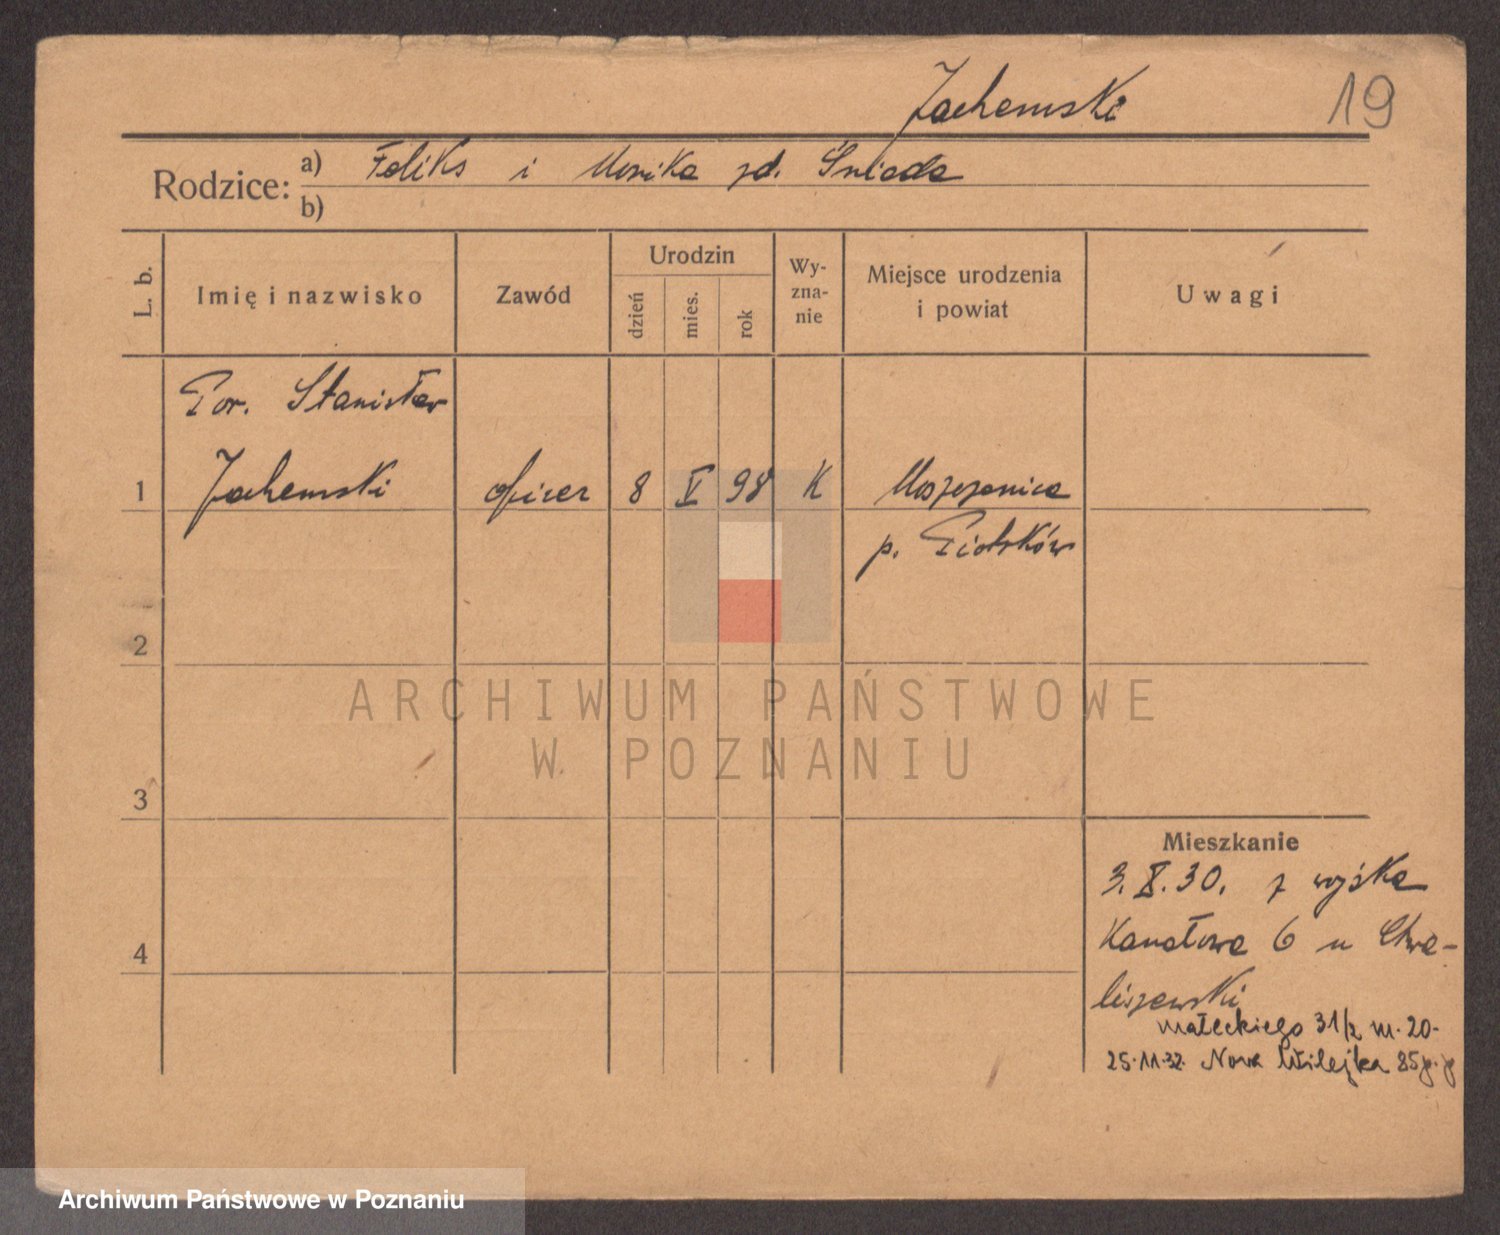 Jachemski
19
Rodzice: a) Feliks i Monika zd. Śniada
b)
L. b.
Imię i nazwisko
Zawód
Urodzin
dzień
mies.
rok
Wy-
zna-
nie
Miejsce urodzenia
i powiat
Uwagi
Por. Stanisław
1 Jachemski oficer 8 V 98 K Moszczanica
p. Piotrków
2
3
4
Mieszkanie
3. X. 30. z wojska
Kanałowa 6 u Chwa-
liszewski
Małeckiego 31/2 m. 20.
25.11.32. Nowa Wilejka 85 p. p
ARCHIWUM PAŃSTWOWE
W POZNANIU
Archiwum Państwowe w Poznaniu